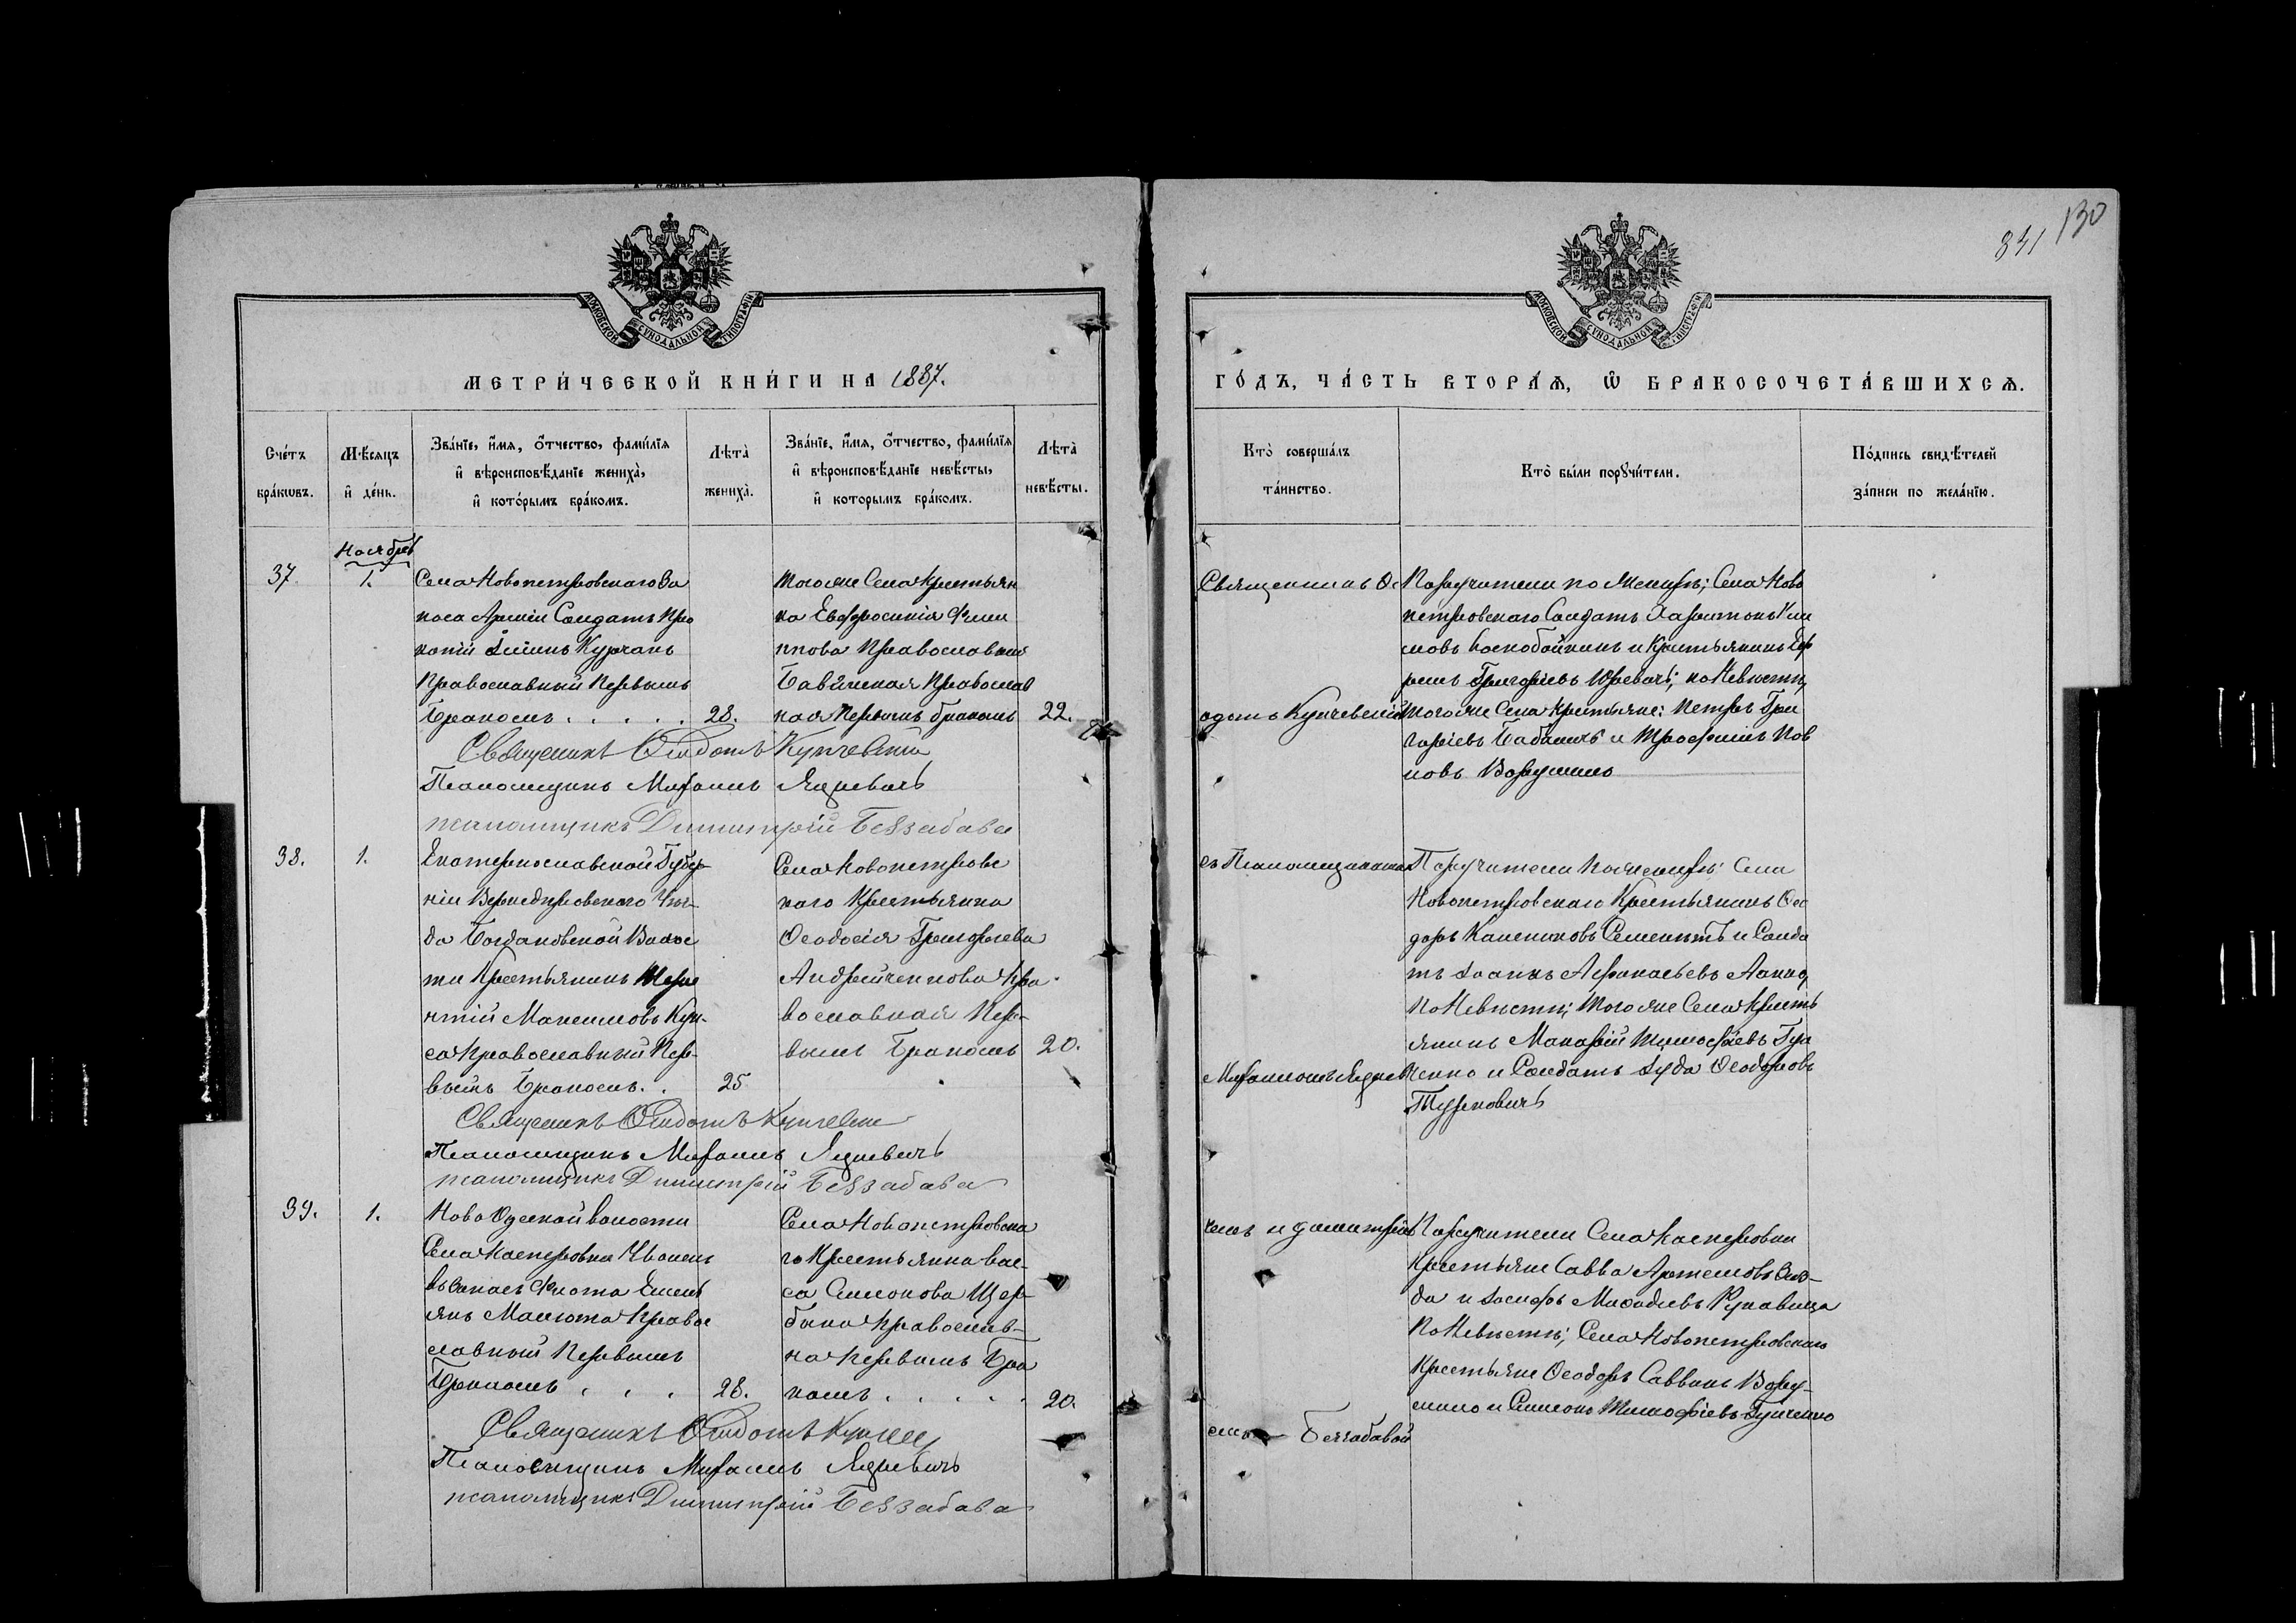 130
841
МОСКОВСКОЙ СУНОДАЛЬНОЙ ТИПОГРАФІИ
МОСКОВСКОЙ СУНОДАЛЬНОЙ ТИПОГРАФІИ
МЕТРИ́ЧЕСКОЙ КНИ́ГИ НА 1887.
ГО́ДЪ, ЧА́СТЬ ВТОРА́Ѧ, Ѿ БРАКОСОЧЕТА́ВШИХСѦ.
Сче́тъ
бра́кѡвъ.
Мѣ́сѧцъ
и҆ де́нь.
Зва́нїе, и҆́мѧ, ѻ҆́тчество, фами́лїѧ
и҆ вѣроисповѣ́данїе жениха̀,
и҆ кото́рымъ бра́комъ.
Лѣта̀
жениха̀.
Зва́нїе, и҆́мѧ, ѻ҆́тчество, фами́лїѧ
и҆ вѣроисповѣ́данїе невѣ́сты,
и҆ которымъ бра́комъ.
Лѣта̀
невѣ́сты.
Кто̀ соверша́лъ
та́инство.
Кто̀ бы́ли порꙋчи́тели.
По́дпись свидѣ́телей
за́писи по жела́нїю.
Ноября
37.
1.
Села Новопетровскаго За
паса Арміи Солдатъ Про
копій Куражъ
Православный Первымъ
Бракомъ . . . . . 28.
Тогоже Села Крестьян
ка Евфросинія Фили
ппова Православная
Православ
ная Первымъ бракомъ 22.
Священникъ Ѳе
одотъ Купчевскій
Поручители по Женихѣ; Села Ново
петровскаго Солдатъ Харитонъ Кли
мовъ Воскобойникъ и Крестьянинъ
Григорьевъ Юревичъ; по Невѣстѣ,
Тогоже Села Крестьяне: Петръ Гри
горіевъ Бабичъ и Трофимъ
новъ Ворушило
Священникъ Ѳеодотъ Купчевскій
Псаломщикъ Михаилъ Яцкевичъ
псаломщикъ Димитрій Беззабава
38.
1.
Екатеринославской Губер
ніи Верхнеднѣпровскаго Уѣз-
да Богдановской Волос
ти Крестьянинъ Тере
нтій Максимовъ
Православный Пер-
вымъ Бракомъ. . 25
Села Новопетровс
каго Крестьянка
Ѳеодосія Григорьева
Андрейченкова Пра
вославная Пер-
вымъ Бракомъ 20.
съ Псаломщиками
Михаиломъ Яцкеви
Поручители по женихѣ: Села
Новопетровскаго Крестьянинъ Ѳео
доръ и Солда
тъ Іоаннъ Афанасьевъ
По Невѣстѣ; Тогоже Села Кресть
янинъ Макарій Тимофѣевъ
ченко и Солдатъ Іуда Ѳеодоровъ
Туркевичъ
Священникъ Ѳеодотъ Купчевскій
Псаломщикъ Михаилъ Яцкевичъ
псаломщикъ Димитрій Беззабава
39.
1.
Ново Одесской волости
Села Касперовки Уволен
въ запасъ Флота Емель
янъ Малюта Право
славный Первымъ
Бракомъ . . . 28.
Села Новопетровска
го Крестьянка Вас-
са Симонова Щер-
бина Православ-
на Первымъ Бра
комъ . . . . . 20.
чемъ и Димитріе
емъ Беззабавой
Поручители Села Касперовки
Крестьяне Савва Артемовъ
да и Іосифъ Рукавица
По Невѣстѣ; Села Новопетровскаго
Крестьяне Ѳеодоръ Саввинъ Вору-
шило и Симеонъ Тимофѣевъ
Священникъ Ѳеодотъ
Псаломщикъ Михаилъ Яцкевичъ
псаломщикъ Димитрій Беззабава